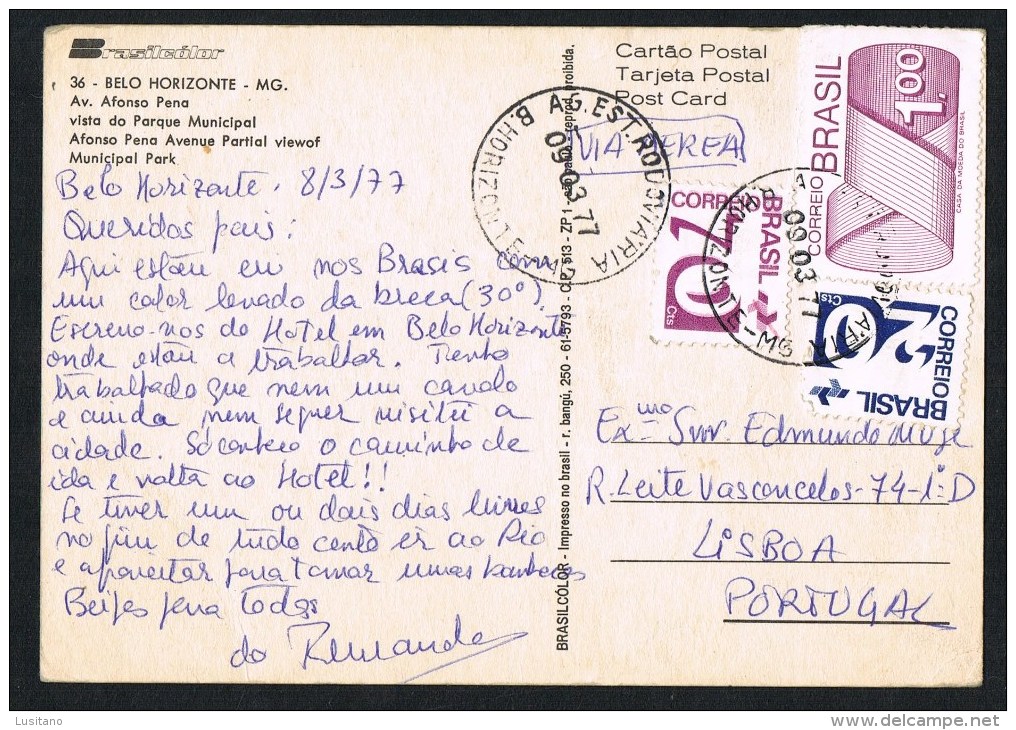 Brasilcólor
36 - BELO HORIZONTE - MG.
Av. Afonso Pena
vista do Parque Municipal
Afonso Pena Avenue Partial viewof
Municipal Park
Belo Horizonte, 8/3/77
Queridos pais:
Aqui estou eu nos Brasis com
um calor levado da breca (30º).
Escrevo-vos do Hotel em Belo Horizonte
onde estou a trabalhar. Tenho
trabalhado que nem um cavalo
e ainda nem sequer visitei a
cidade. Só conheço o caminho de
ida e volta ao Hotel!!
Se tiver um ou dois dias livres
no fim de tudo conto ir ao Rio
e aproveitar para tomar umas banhocas
Beijos para todos
do
BRASILCÓLOR - Impresso no brasil - r. bangú, 250 - 61-5793 - C.P. 513 - ZP1 - são paulo - reprod. proibida.
Cartão Postal
Tarjeta Postal
Post Card
VIA AEREA
AG. EST. RODOVIÁRIA
B. HORIZONTE-MG
09.03.77
BRASIL
CORREIO
1,00
CASA DA MOEDA DO BRASIL
CORREIO
BRASIL
01
Cts
HORIZONTE-MG
09 03 77
CORREIO
BRASIL
20
Cts
Exmo Snr. Edmundo
R. Leite Vasconcelos-74-1:D
LISBOA
PORTUGAL
Lusitano
delcampe.net